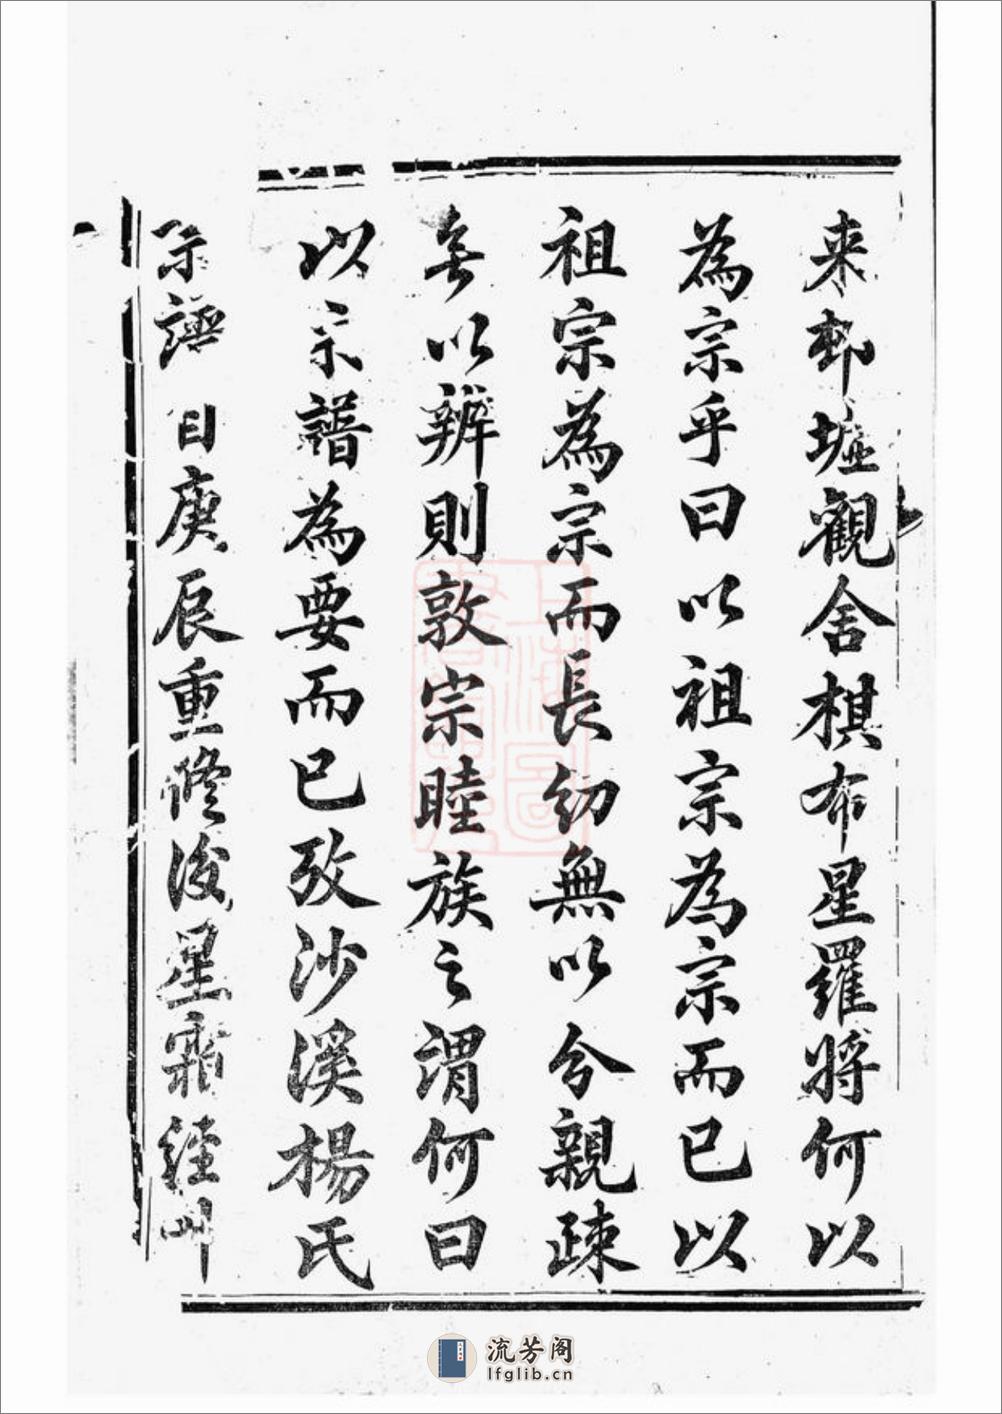 来邨墟觀舍棋布星羅將何以
為宗乎曰以祖宗為宗而已以
祖宗為宗而長幼無以分親疎
無以辨則敦宗睦族之謂何曰
以宗譜為要而已攷沙溪楊氏
宗譜自庚辰重修後星霜經
流芳阁
lfglib.cn